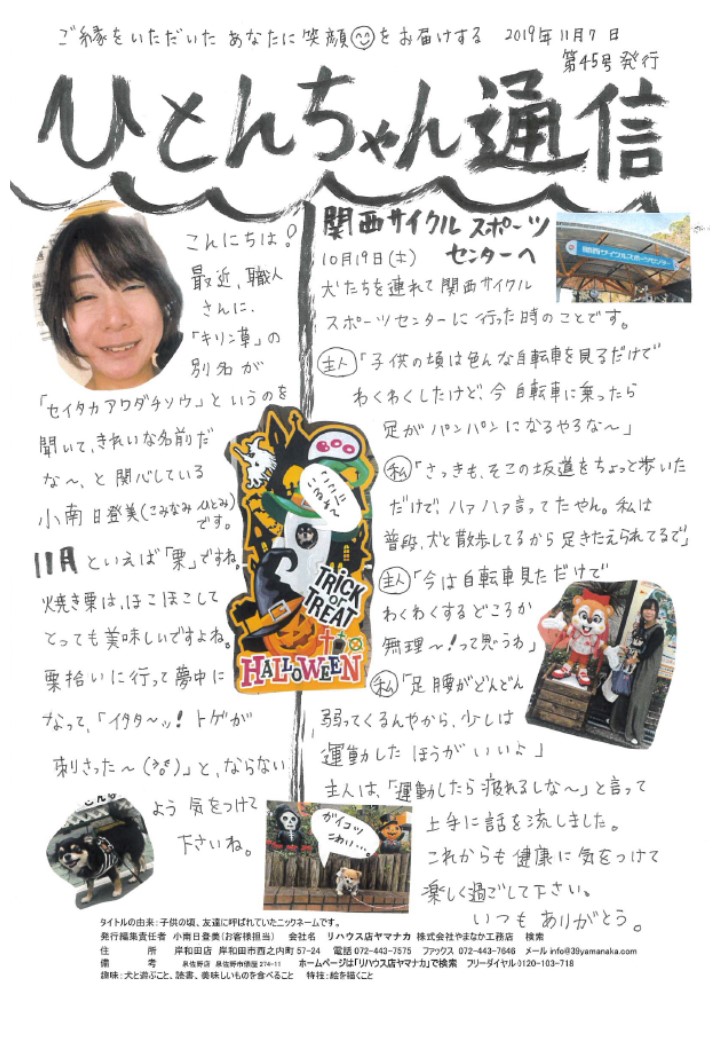 ご縁をいただいた あなたに笑顔をお届けする 2019年11月7日
第45号発行
ひとんちゃん通信
こんにちは!
最近、職人
さんに、
「キリン草」の
別名が
「セイタカアワダチソウ」というのを
聞いて、きれいな名前だ
な〜、と関心している
小南日登美(こみなみ ひとみ)
です。
11月といえば「栗」ですね。
焼き栗は、ほこほこして
とっても美味しいですよね。
栗拾いに行って夢中に
なって、「イタタ〜ッ! トゲが
刺さった〜
」と、ならない
よう気をつけて
下さいね。
ここに
いるよ〜
TRICK
or
TREAT
HALLOWEEN
関西サイクルスポーツ
センターへ
関西サイクルスポーツセンター
10月19日(土)
犬たちを連れて関西サイクル
スポーツセンターに行った時のことです。
主人「子供の頃は色んな自転車を見るだけで
わくわくしたけど、今自転車に乗ったら
足がパンパンになるやろな〜」
私「さっきも、そこの坂道をちょっと歩いた
だけで、ハァハァ言ってたやん。私は
普段、犬と散歩してるから足きたえられてるで」
主人「今は自転車見ただけで
わくわくするどころか
無理〜!って思うわ」
私「足腰がどんどん
弱ってくるんやから、少しは
運動したほうがいいよ」
主人は、「運動したら疲れるしな〜」と言って
上手に話を流しました。
これからも健康に気をつけて
楽しく過ごして下さい。
いつもありがとう。
ガイコツ
こわい…
タイトルの由来:子供の頃、友達に呼ばれていたニックネームです。
発行編集責任者 小南日登美(お客様担当) 会社名 リハウス店ヤマナカ 株式会社やまなか工務店 検索
住 所 岸和田店 岸和田市西之内町57-24 電話 072-443-7575 ファックス 072-443-7646 メール info@39yamanaka.com
備 考 泉佐野店 泉佐野市俵屋274-11 ホームページは「リハウス店ヤマナカ」で検索 フリーダイヤル 0120-103-718
趣味:犬と遊ぶこと、読書、美味しいものを食べること 特技:絵を描くこと